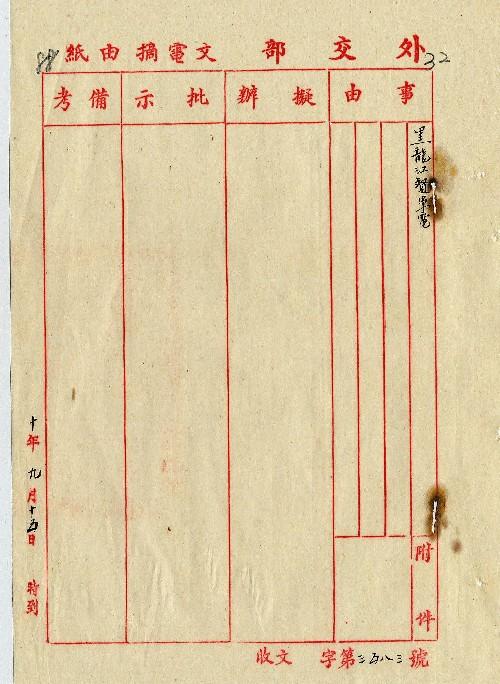 外交部文電摘由紙
32
88
事由
擬辦
批示
備考
黑龍江督軍電
附件
十年九月十五日 時到
收文 字第三五八三號